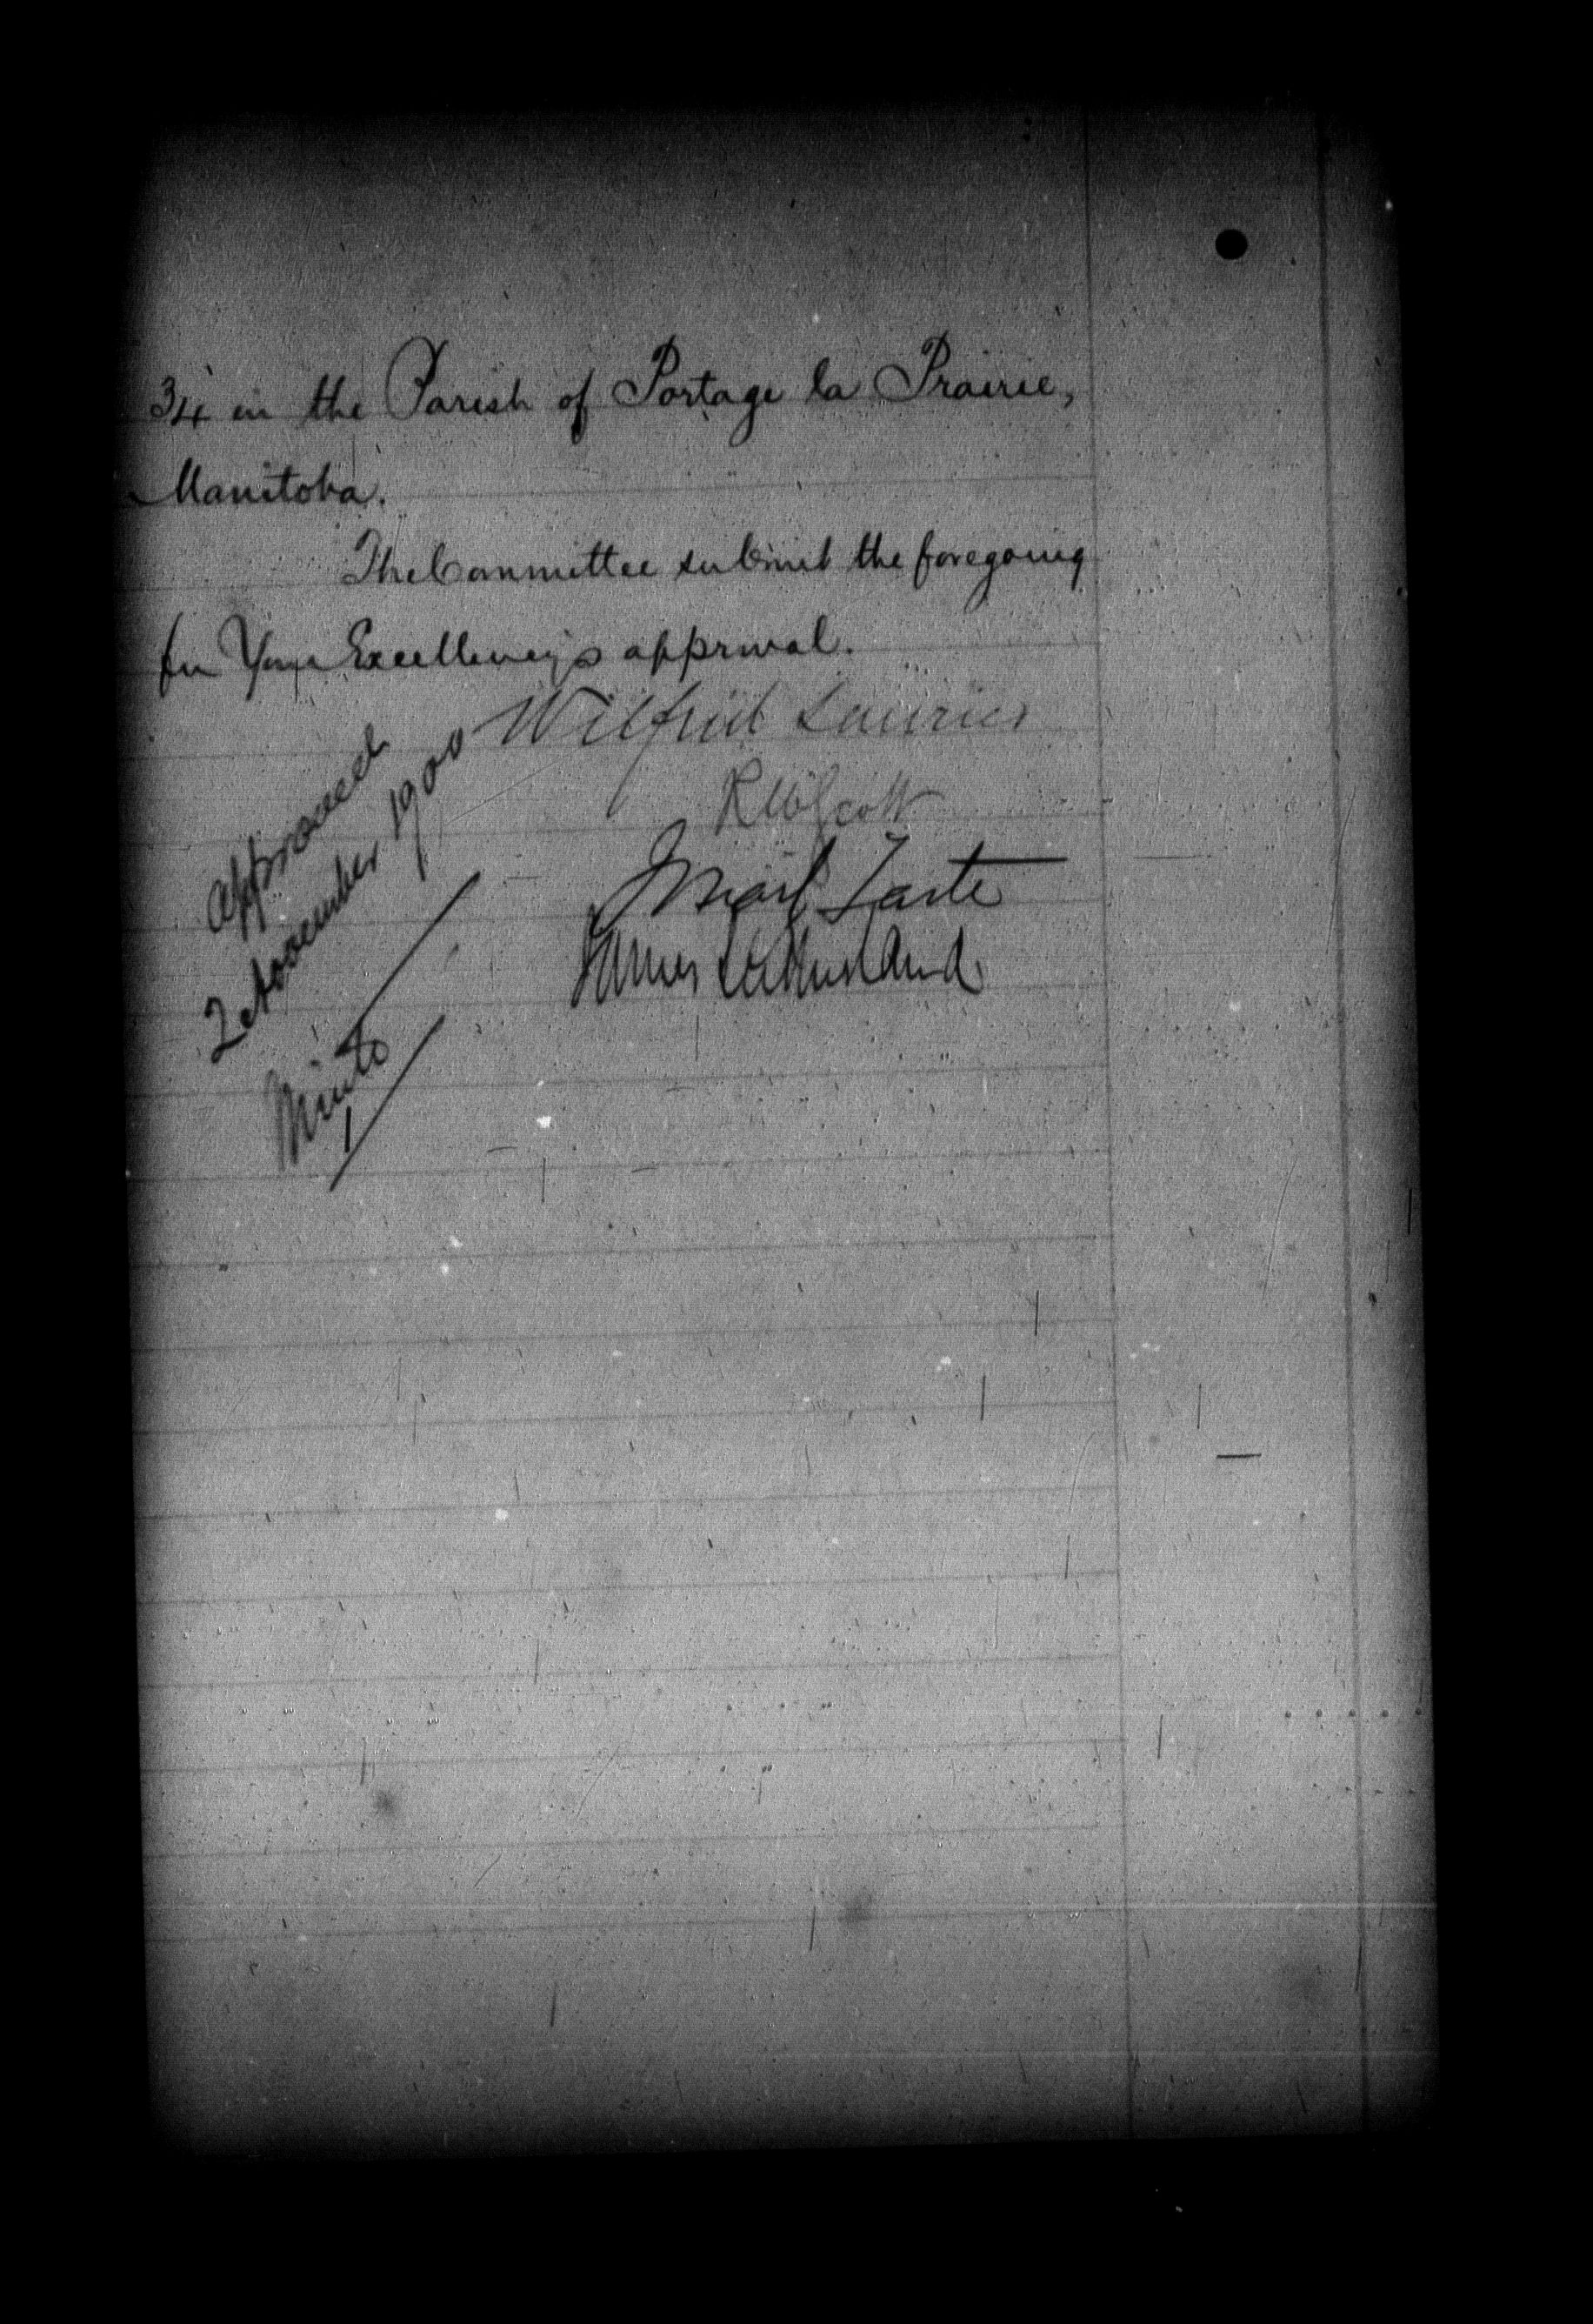 34 in the Parish of Portage la Prairie,
Manitoba.
The Committee submit the foregoing
for Your Excellency's approval.
Wilfrid Laurier
RWScott
J Israel Tarte
James Sutherland
Approved
2 November 1900
Minto